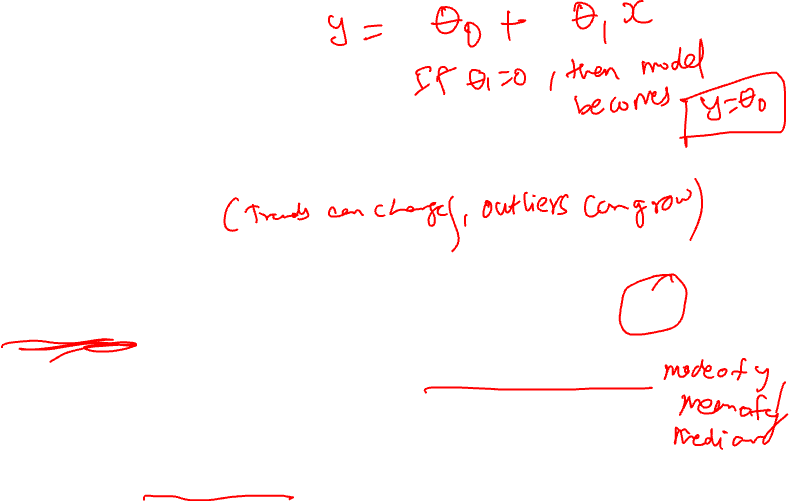 y = θ0 + θ1 x
If θ1=0, then model
becomes y=θ0
(Trends can change, outliers can grow)
mode of y
mean of y
median